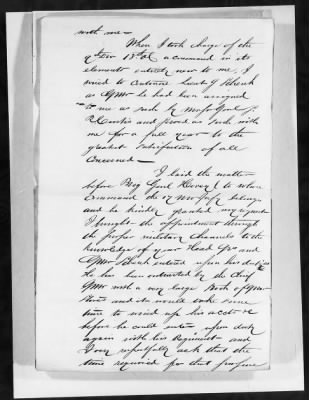 with me —
When I took charge of the
Div 13th a command in its
elements entirely new to me, I
tried to continue Lieut J Schenk
as he had been assigned
to me as such by Major Genl
Curtis and proved as such with
me for a full year to the
greatest satisfaction of all
concerned —
I laid the matter
before Brig Genl Hovey (to whose
command the belongs
and he kindly granted my request
I brought the appointment through
the proper military channels to the
knowledge of your Head Qrs and
Schenk entered upon his duties
He has been entrusted by the Chief
with a very large Stock of
Stores and it would take some
time to wind up his accts &c
before he could enter upon duty
again with his Regiment and
I very respectfully ask that the
time required for that purpose